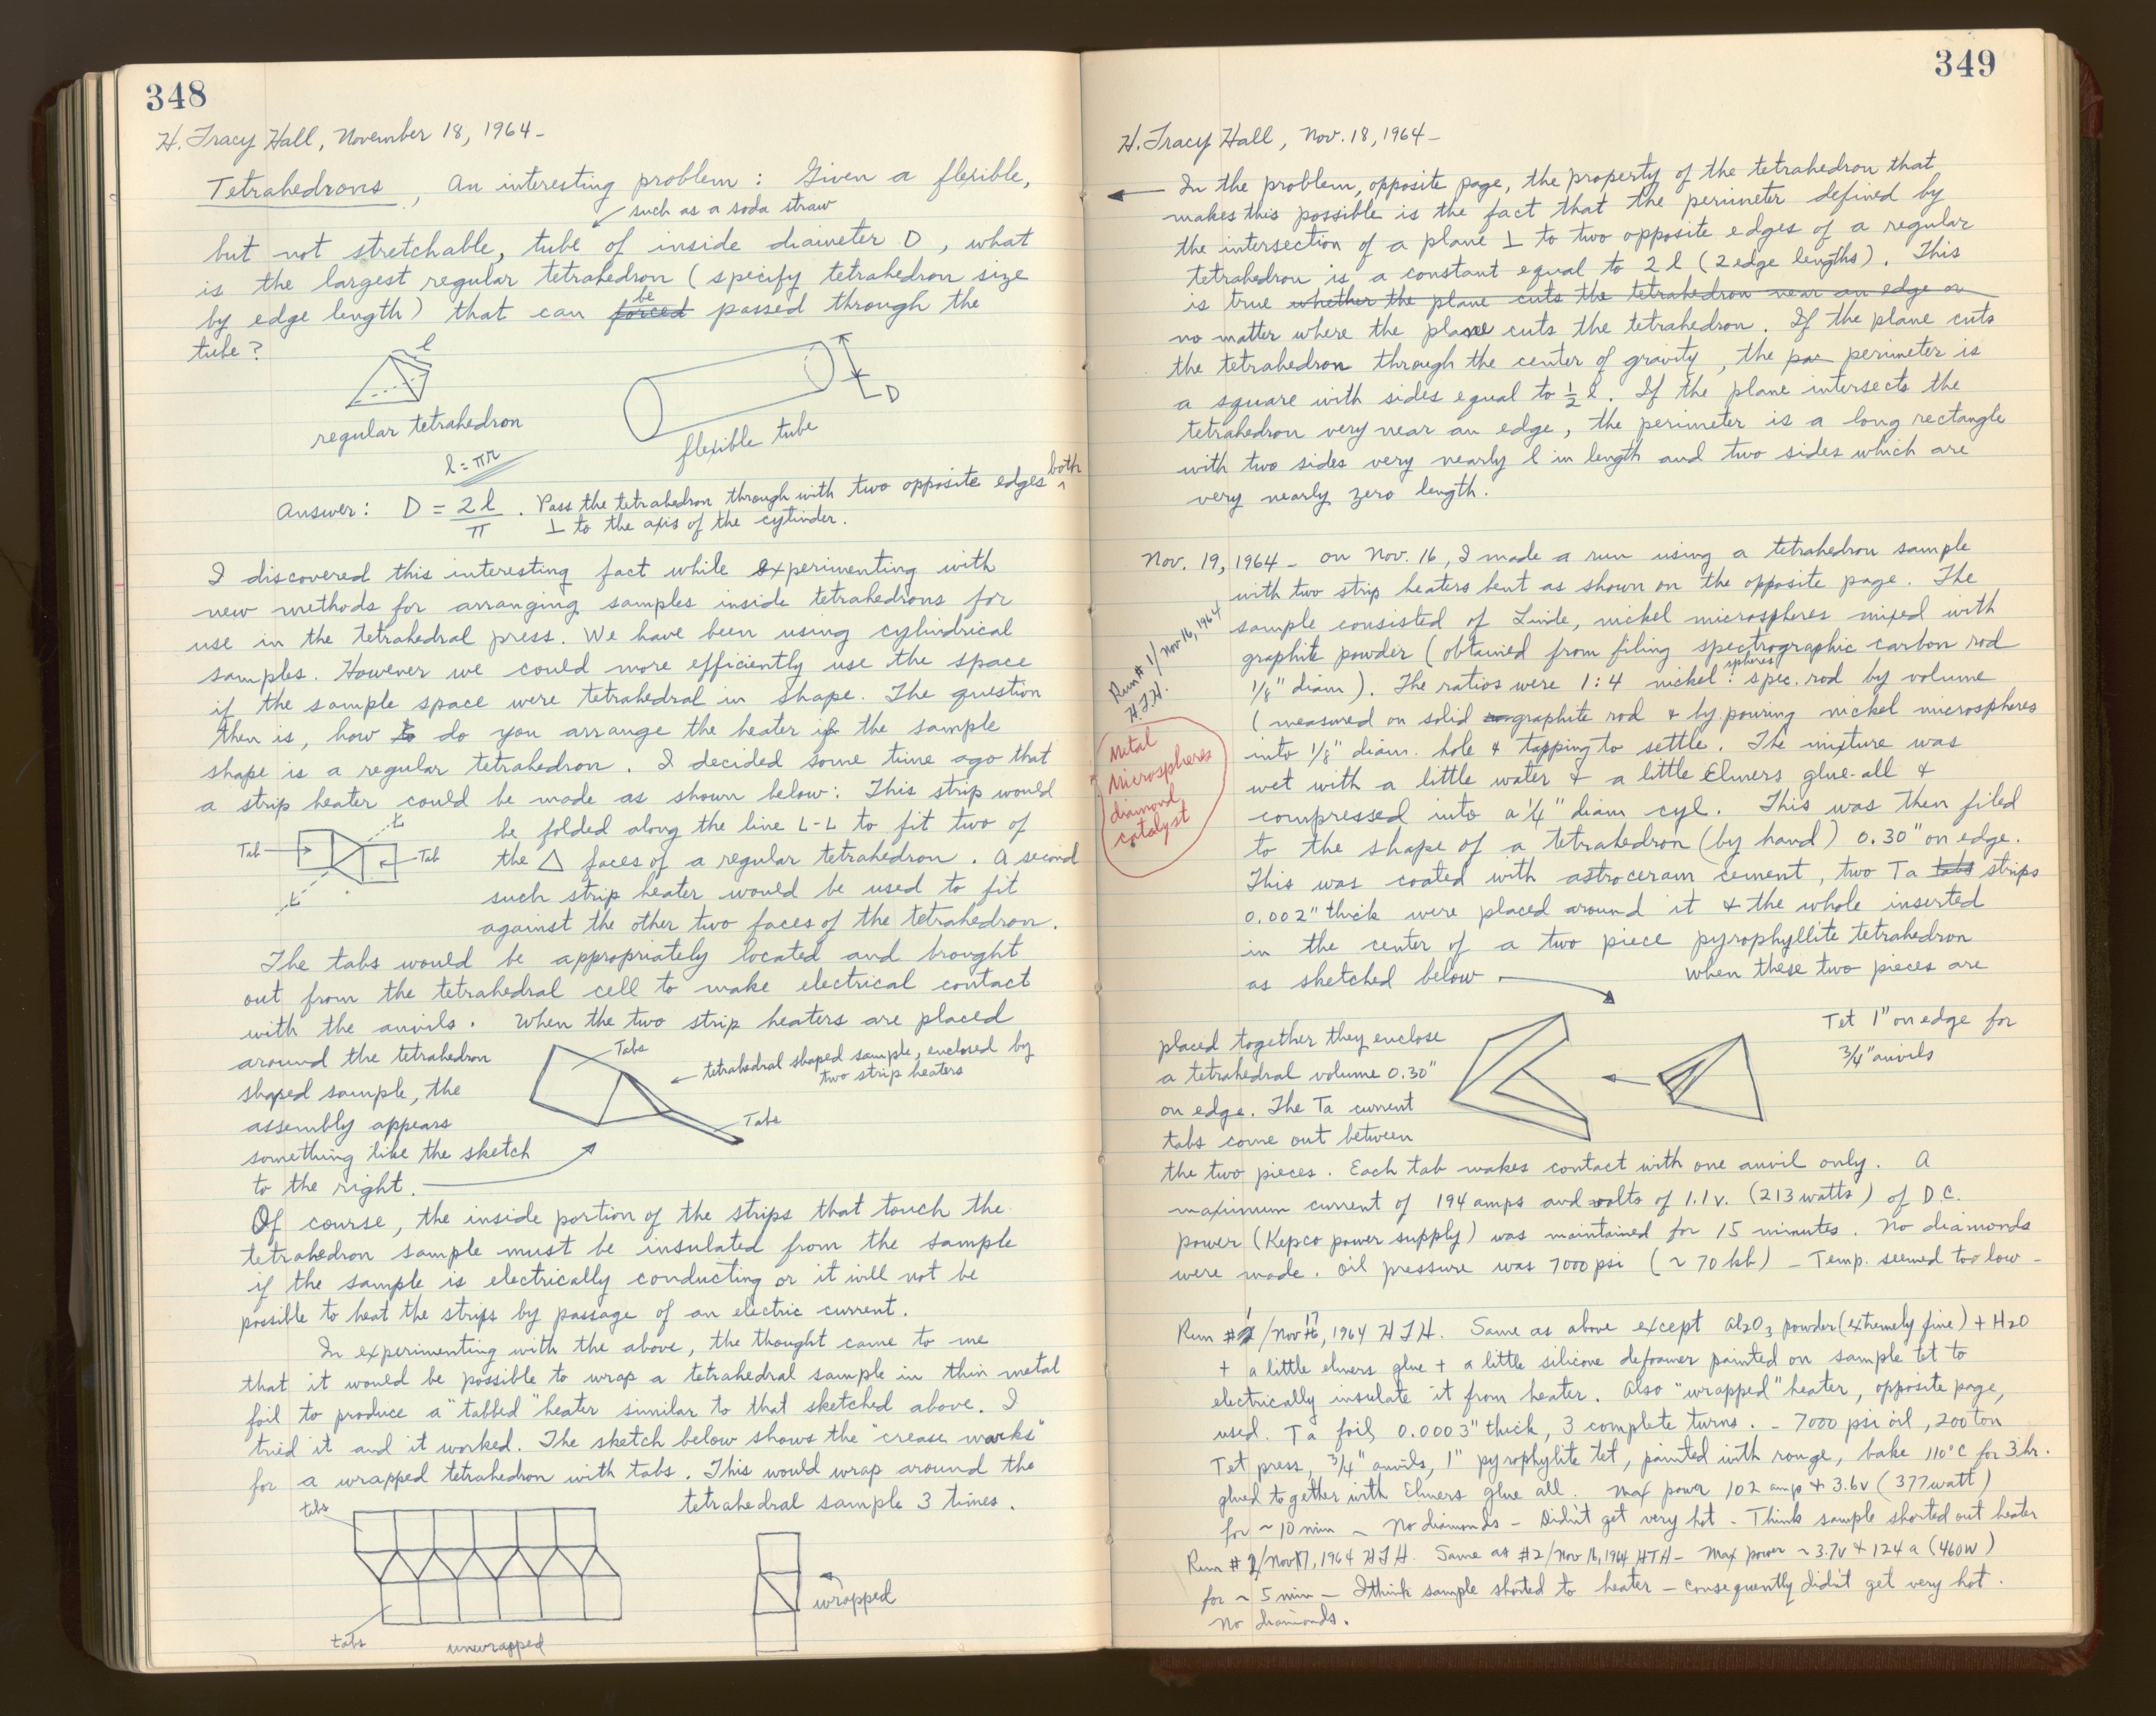 348
H. Tracy Hall, November 18, 1964-
Tetrahedrons, An interesting problem: Given a flexible,
such as a soda straw
but not stretchable, tube of inside diameter D, what
is the largest regular tetrahedron (specify tetrahedron size
by edge length) that can forced be passed through the
tube?
l
D
regular tetrahedron
flexible tube
l = πr
Answer: D = 2l/π. Pass the tetrahedron through with two opposite edges both
⊥ to the axis of the cylinder.
I discovered this interesting fact while experimenting with
new methods for arranging samples inside tetrahedrons for
use in the tetrahedral press. We have been using cylindrical
samples. However we could more efficiently use the space
if the sample space were tetrahedral in shape. The question
then is, how to do you arrange the heater if the sample
shape is a regular tetrahedron. I decided some time ago that
a strip heater could be made as shown below: This strip would
be folded along the line L-L to fit two of
the △ faces of a regular tetrahedron. A second
such strip heater would be used to fit
against the other two faces of the tetrahedron.
L
Tab
Tab
L
The tabs would be appropriately located and brought
out from the tetrahedral cell to make electrical contact
with the anvils. When the two strip heaters are placed
around the tetrahedron
shaped sample, the
assembly appears
something like the sketch
to the right.
Tabs
tetrahedral shaped sample, enclosed by
two strip heaters
Tabs
Of course, the inside portion of the strips that touch the
tetrahedron sample must be insulated from the sample
if the sample is electrically conducting or it will not be
possible to heat the strips by passage of an electric current.
In experimenting with the above, the thought came to me
that it would be possible to wrap a tetrahedral sample in thin metal
foil to produce a "tabbed" heater similar to that sketched above. I
tried it and it worked. The sketch below shows the "crease marks"
for a wrapped tetrahedron with tabs. This would wrap around the
tetrahedral sample 3 times.
tabs
tabs
unwrapped
wrapped
349
H. Tracy Hall, Nov. 18, 1964-
In the problem, opposite page, the property of the tetrahedron that
makes this possible is the fact that the perimeter defined by
the intersection of a plane ⊥ to two opposite edges of a regular
tetrahedron is a constant equal to 2l (2 edge lengths). This
is true whether the plane cuts the tetrahedron near an edge or
no matter where the plane cuts the tetrahedron. If the plane cuts
the tetrahedron through the center of gravity, the par perimeter is
a square with sides equal to ½ l. If the plane intersects the
tetrahedron very near an edge, the perimeter is a long rectangle
with two sides very nearly l in length and two sides which are
very nearly zero length.
Nov. 19, 1964- On Nov. 16, I made a run using a tetrahedron sample
with two strip heaters bent as shown on the opposite page. The
sample consisted of Linde, nickel microspheres mixed with
graphite powder (obtained from filing spectrographic carbon rod
1/8" diam). The ratios were 1:4 nickel spheres: spec. rod by volume
(measured on solid graphite rod & by pouring nickel microspheres
into 1/8" diam. hole & tapping to settle. The mixture was
wet with a little water & a little Elmers glue-all &
compressed into a 1/4" diam cyl. This was then filed
to the shape of a tetrahedron (by hand) 0.30" on edge.
This was coated with astroceram cement, two Ta tabs strips
0.002" thick were placed around it & the whole inserted
in the center of a two piece pyrophyllite tetrahedron
as sketched below. When these two pieces are
Run #1/Nov 16, 1964
H.T.H.
Metal
Microspheres
diamond
catalyst
placed together they enclose
a tetrahedral volume 0.30"
on edge. The Ta current
tabs come out between
Tet 1" on edge for
3/4" anvils
the two pieces. Each tab makes contact with one anvil only. A
maximum current of 194 amps and volts of 1.1 v. (213 watts) of D.C.
power (Kepco power supply) was maintained for 15 minutes. No diamonds
were made. Oil pressure was 7000 psi (~70 kb) - Temp. seemed too low -
Run #1/Nov 17, 1964 HTH. Same as above except Al2O3 powder (extremely fine) + H2O
+ a little elmers glue + a little silicone defoamer painted on sample tet to
electrically insulate it from heater. Also "wrapped" heater, opposite page,
used. Ta foil, 0.0003" thick, 3 complete turns. - 7000 psi oil, 200 ton
Tet press, 3/4" anvils, 1" pyrophylite tet, painted with rouge, bake 110°C for 3 hr.
glued together with Elmers glue all. Max power 102 amp & 3.6v (377 watt)
for ~10 min - No diamonds - Didn't get very hot - Think sample shorted out heater
Run #2/Nov 17, 1964 HTH. Same as #2/Nov 16, 1964 HTH - Max power ~3.7v & 124 a (460w)
for ~5 min - I think sample shorted to heater - consequently didn't get very hot.
No diamonds.